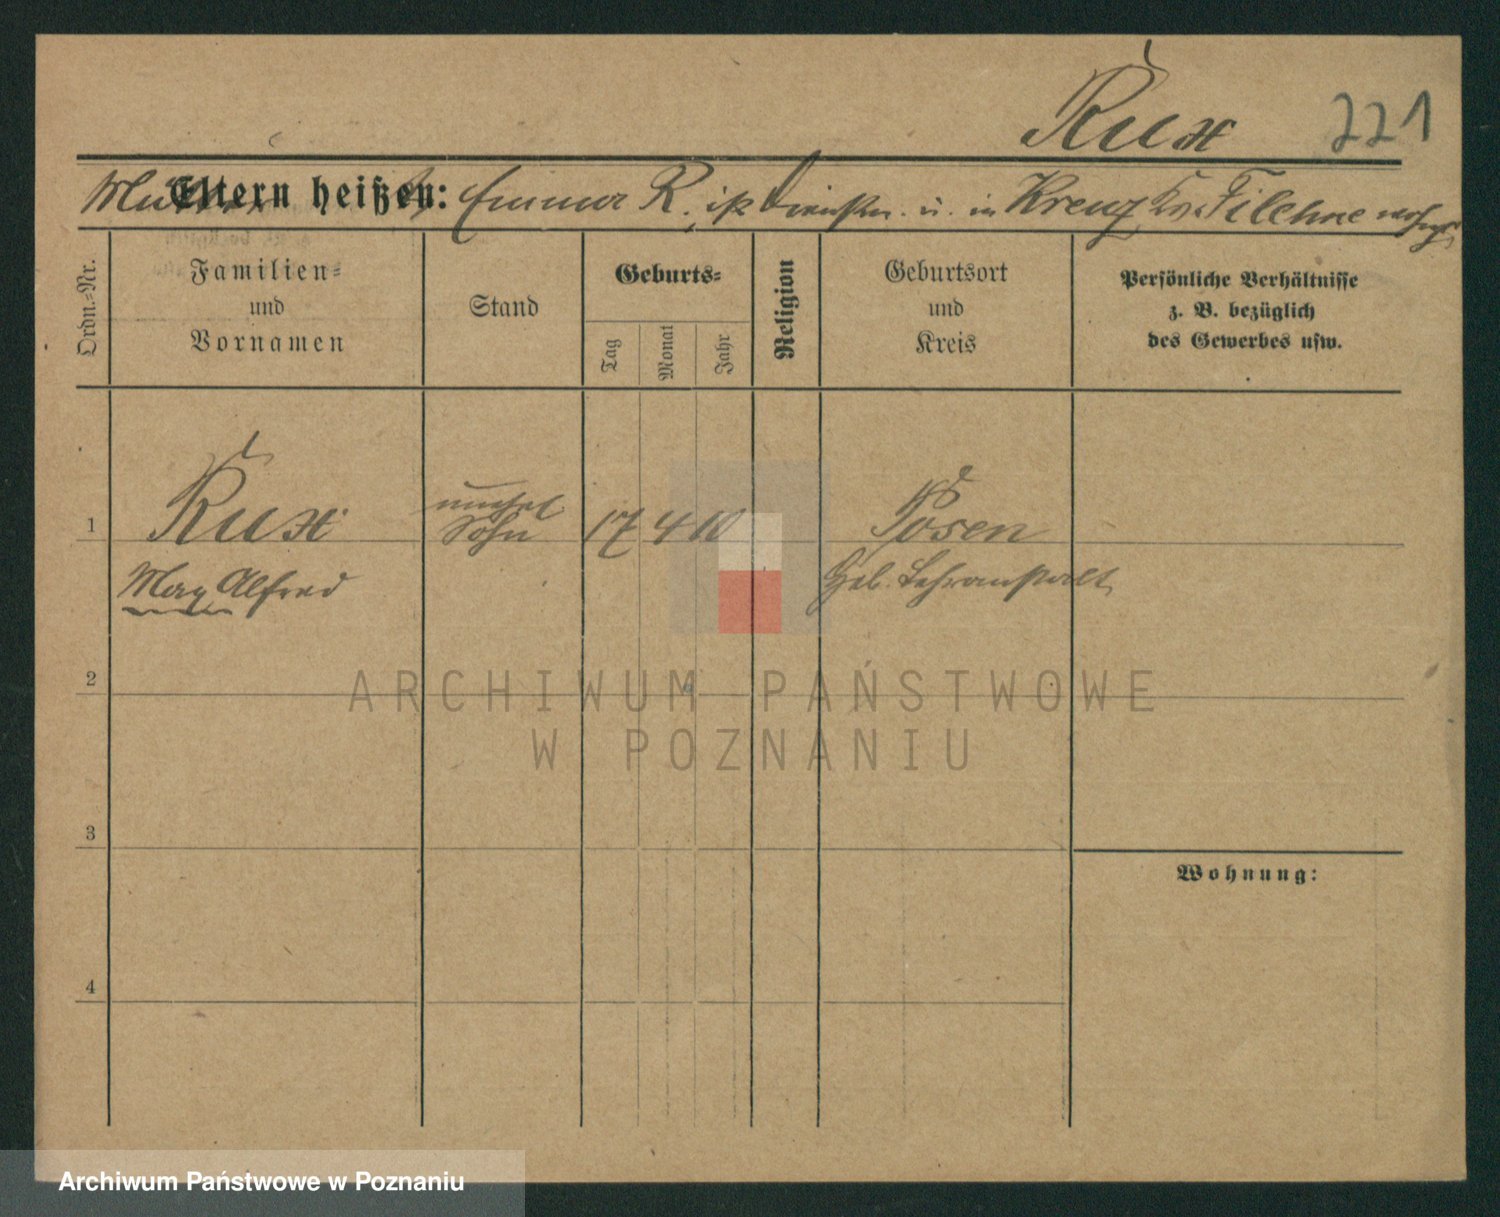 Rux 221
Mutter
Eltern heißen: Emma R., ist Dienstm. u. in Kreuz Kr. Filehne wohnh.
Ordn.=Nr.
Familien=
und
Vornamen
Stand
Geburts=
Tag
Monat
Jahr
Religion
Geburtsort
und
Kreis
Persönliche Verhältnisse
z. B. bezüglich
des Gewerbes usw.
1 Rux unehel. 17 4 10 Posen
Sohn
Max Alfred Heb. Lehranstalt
2
ARCHIWUM PAŃSTWOWE
W POZNANIU
3
Wohnung:
4
Archiwum Państwowe w Poznaniu